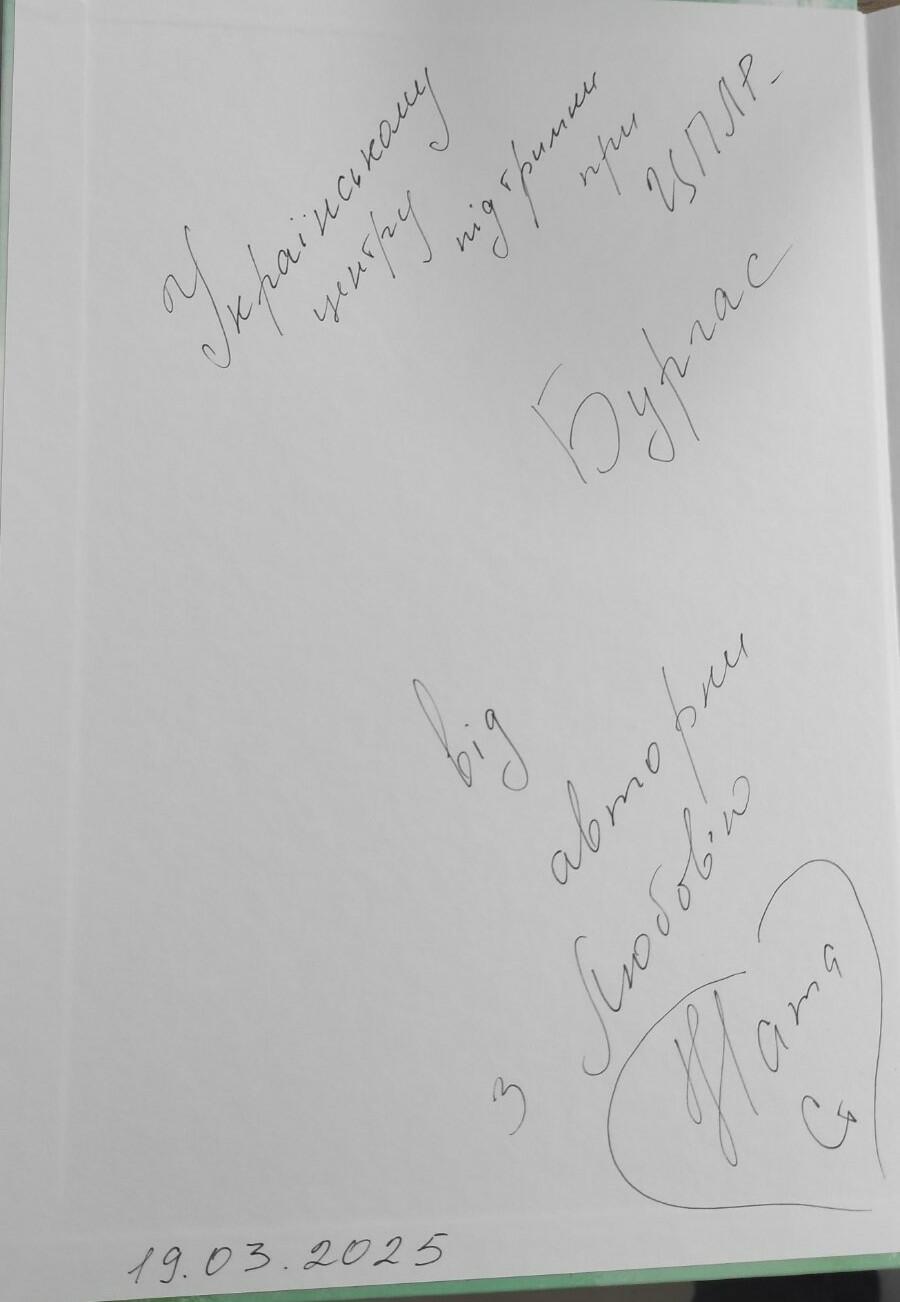 Українському
центру підтримки при ЦПЛР-
Бургас
від
авторки
з Любов'ю
Ната
19.03.2025